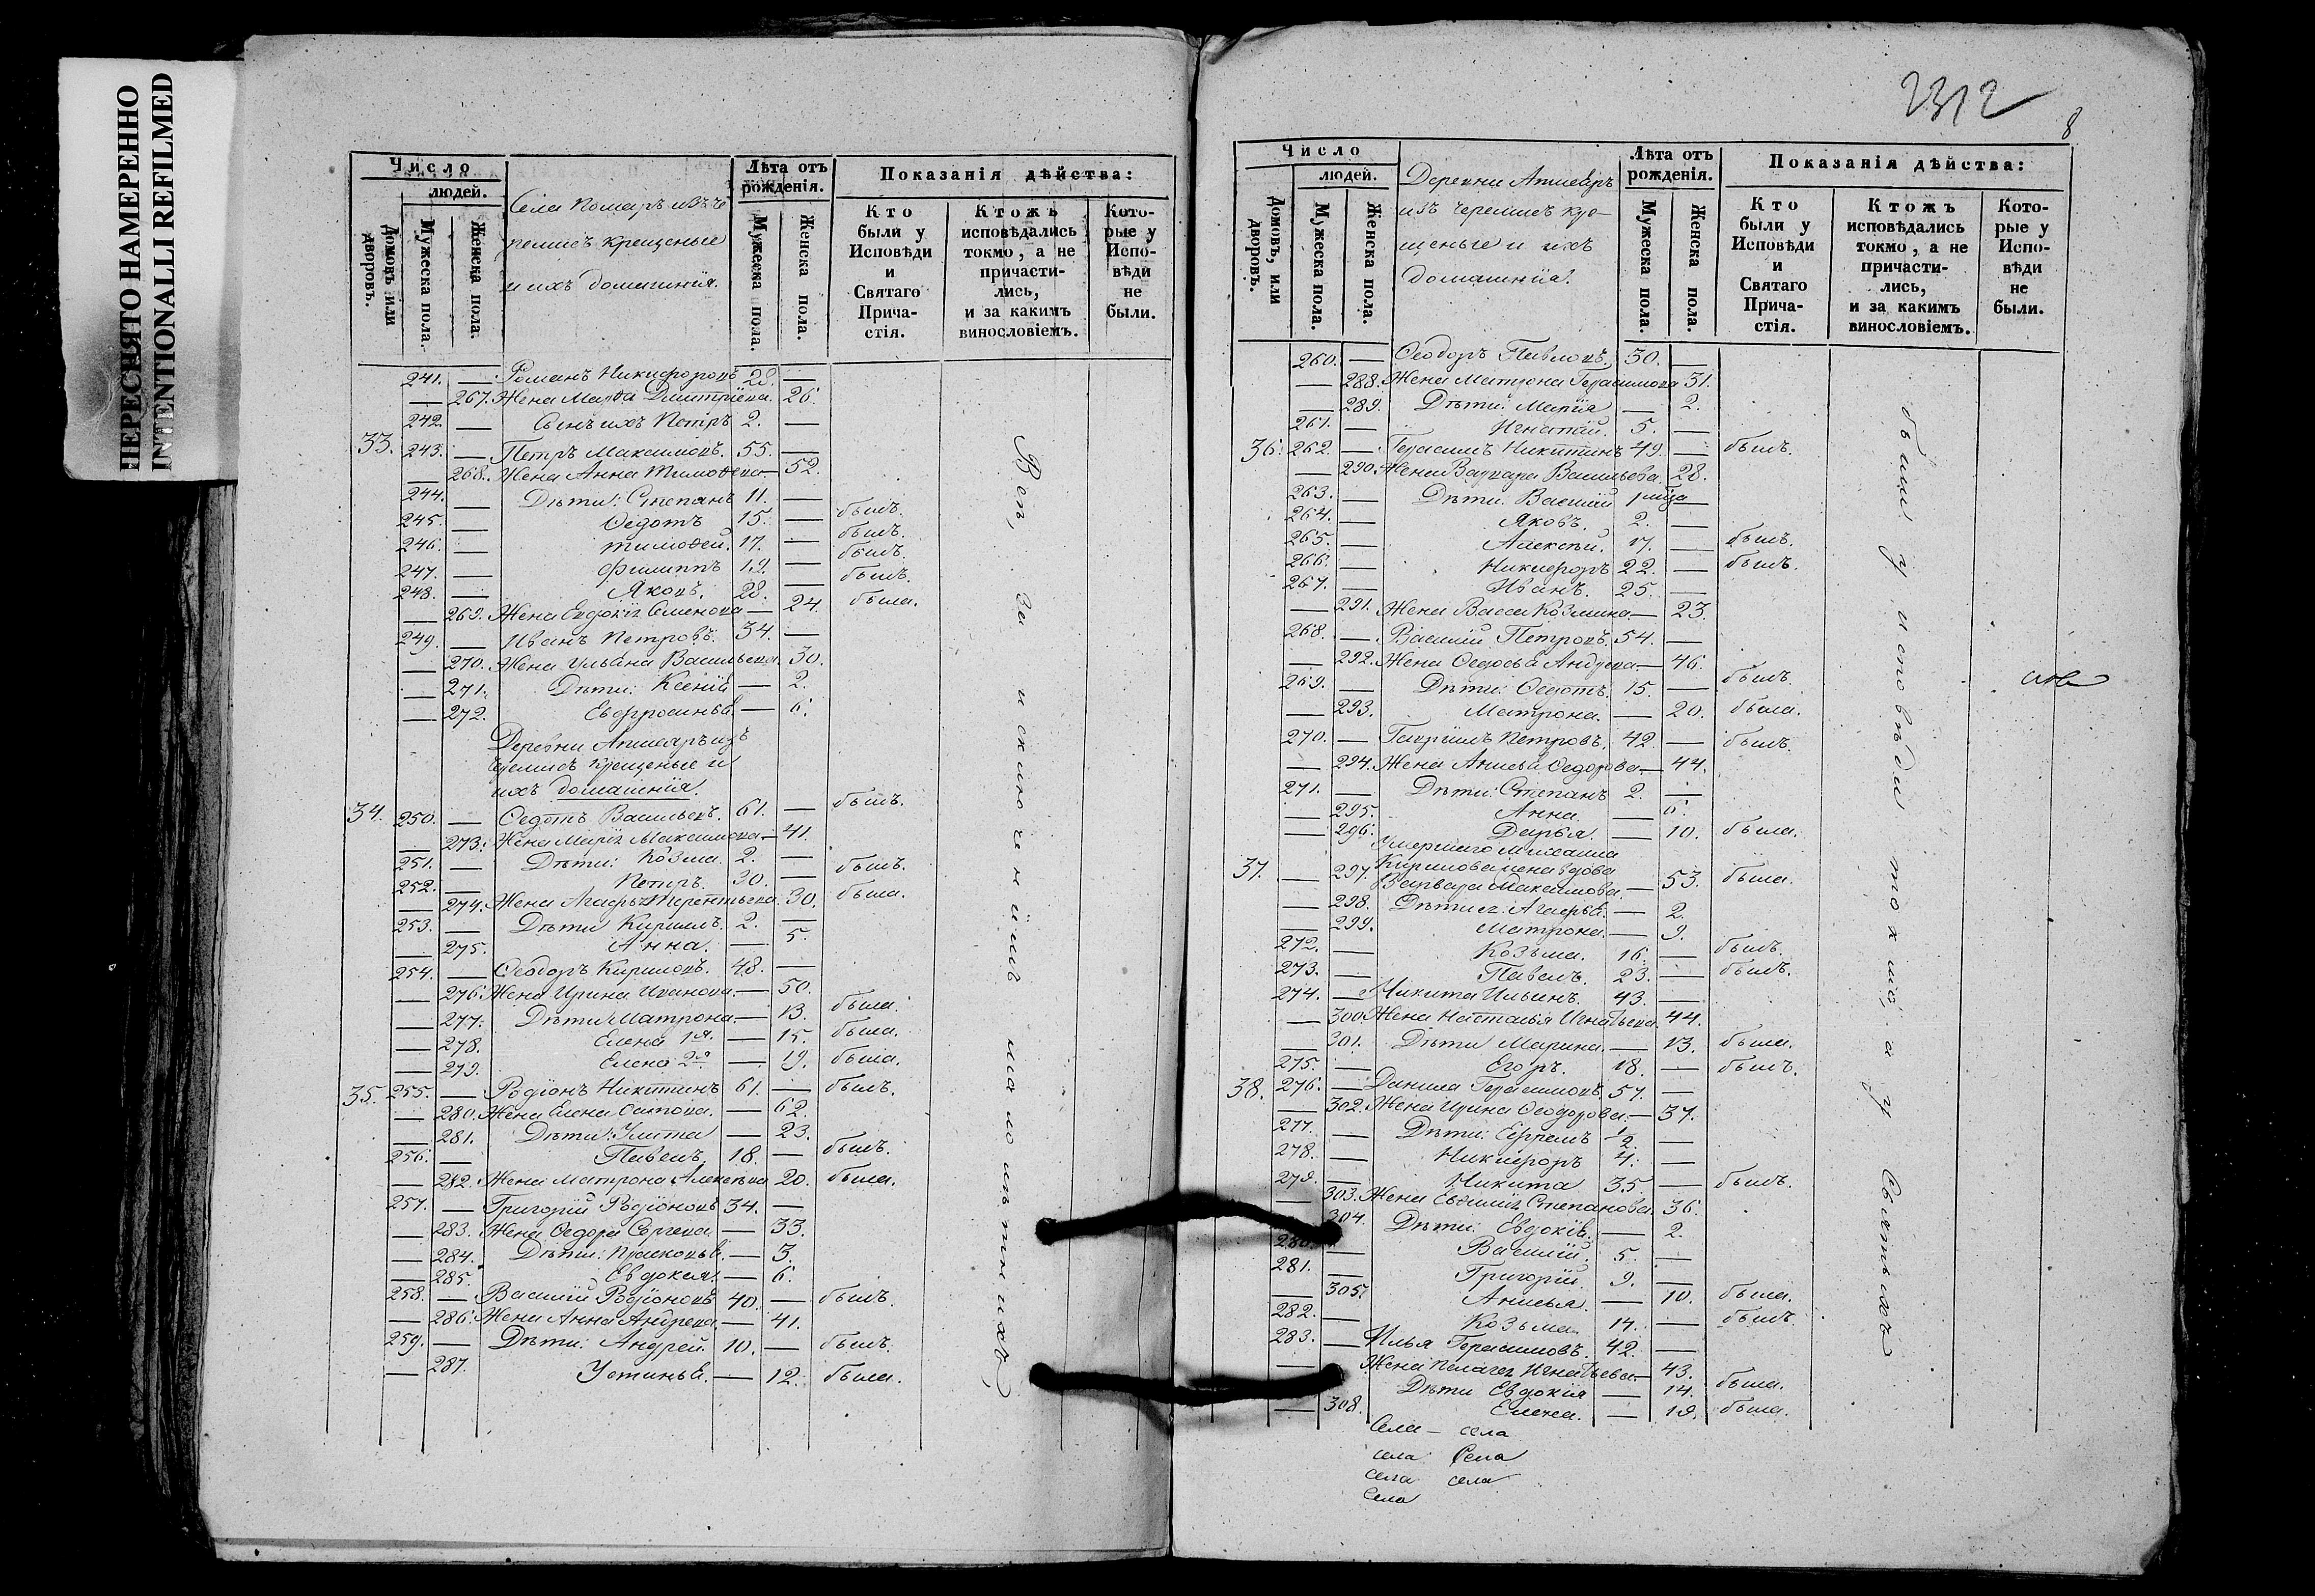 ПЕРЕСНЯТО НАМЕРЕННО
INTENTIONALLI REFILMED
Число
людей.
Домовъ или дворовъ.
Мужеска пола.
Женска пола.
Села Помаръ изъ че
ремисъ крещеные
и ихъ домашнія.
Лѣта отъ рожденія.
Мужеска пола.
Женска пола.
Показанія дѣйства:
Кто были у Исповѣди и Святаго Прича-стія.
Ктожъ исповѣдались токмо, а не причасти-лись, и за какимъ винословіемъ.
Кото-рые у Испо-вѣди не были.
241. — Романъ Никифоровъ 28. —
— 267. Жена Марѳа Дмитріева. 26.
242. — Сынъ ихъ Петръ 2. —
33. 243. — Петръ Максимовъ. 55. —
— 268. Жена Анна Тимоѳева — 52.
244. — Дѣти: Степанъ 11. —
245. — Ѳедотъ 15. — былъ.
246. — Тимоѳей. 17. — былъ.
247. — Филиппъ 19. — былъ.
248. — Яковъ. 28. — былъ.
— 269. Жена Евдокія Семенова — 24. была.
249. — Иванъ Петровъ. 34. —
— 270. Жена Ульяна Васильева. 30.
— 271. Дѣти: Ксенія — 2.
— 272. Евфросинья. — 6.
Деревни Апшеяръ изъ
черемисъ крещеные и
ихъ домашнія.
34. 250. — Ѳедотъ Васильевъ. 61. — былъ.
— 273. Жена Марія Максимова — 41.
251. — Дѣти: Козма. 2. —
252. — Петръ. 30. — былъ.
— 274. Жена Агафья Терентьева. 30. была.
253. — Дѣти Кирилъ. 2. —
— 275. Анна. — 5.
254. — Ѳеодоръ Кириловъ. 48. —
— 276. Жена Ирина Иванова. — 50.
— 277. Дѣти Матрона. — 13. была.
— 278. Елена 1я. — 15. была.
— 279. Елена 2я — 19. была.
35. 255. — Родіонъ Никитинъ 61. — былъ.
— 280. Жена Елена — 62.
— 281. Дѣти: Улита — 23.
256. — Павелъ. 18. — былъ.
— 282. Жена Матрона Алексѣева 20. была.
257. — Григорій Родіоновъ 34. —
— 283. Жена Ѳедора Сергева — 33.
— 284. Дѣти: Прасковья. — 3.
— 285. Евдокія. — 6.
258. — Василій Родіоновъ 40. — былъ.
— 286. Жена Анна Андрева. — 41.
259. — Дѣти: Андрей. 10. — былъ.
— 287. Устинья. — 12. была.
Всѣ, за исключеніемъ малолѣтнихъ,
2312
8
Число
людей.
Домовъ, или дворовъ.
Мужеска пола.
Женска пола.
Деревни Апшеяръ
изъ черемисъ кре-
щеные и ихъ
домашнія.
Лѣта отъ рожденія.
Мужеска пола.
Женска пола.
Показанія дѣйства:
Кто были у Исповѣди и Святаго Прича-стія.
Ктожъ исповѣдались токмо, а не причасти-лись, и за какимъ винословіемъ.
Кото-рые у Испо-вѣди не были.
260. — Ѳеодоръ Павловъ. 30. —
— 288. Жена Матрона Герасимова 31.
— 289. Дѣти: Марія — 2.
261. — Игнатій. 5. —
36. 262. — Герасимъ Никитинъ 49. — былъ.
— 290. Жена Варвара Васильева. 28.
263. — Дѣти: Василій —
264. — Яковъ. 2. —
265. — Алексѣй. 17. — былъ.
266. — Никифоръ 22. — былъ.
267. — Иванъ. 25. —
— 291. Жена Васса Козмина — 23.
268. — Василій Петровъ. 54. —
— 292. Жена Ѳедосья Андрева — 46.
269. — Дѣти: Ѳедотъ. 15. — былъ.
— 293. Матрона. — 20. была.
270. — Гаврилъ Петровъ. 42. — былъ.
— 294. Жена Анисья Ѳедорова — 44.
271. — Дѣти: Степанъ 2. —
— 295. Анна. — 6.
— 296. Дарья. — 10. была.
Умершаго Михаила
Кирилова жена вдова
37. — 297. Варвара Максимова — 53. была.
— 298. Дѣти ея: Агафья. — 2.
— 299. Матрона. — 9.
272. — Козьма. 16. — былъ.
273. — Павелъ. 23. — былъ.
274. — Никита Ильинъ. 43. —
— 300. Жена Наталья Игнатьева. 44.
— 301. Дѣти Марина. — 13. была.
275. — Егоръ. 18. — былъ.
38. 276. — Данила Герасимовъ. 57. —
— 302. Жена Ирина Ѳеодорова — 37.
277. — Дѣти: Ефремъ 1/2. —
278. — Никифоръ 4. —
279. — Никита 35 — былъ.
— 303. Жена Евфимія Степанова. 36.
304. Дѣти: Евдокія. — 2.
280. — Василій. 5. —
281. — Григорій. 9. —
— 305. Анисья. — 10. была.
282. — Козьма. 14. — былъ.
283. — Илья Герасимовъ. 42. —
— Жена Пелагея Игнатьева — 43.
Дѣти Евдокія — 14. была.
— 308. Елена. — 19. была.
были у исповѣди токмо, а у Святыхъ
Села — села
села Села
села села
Села